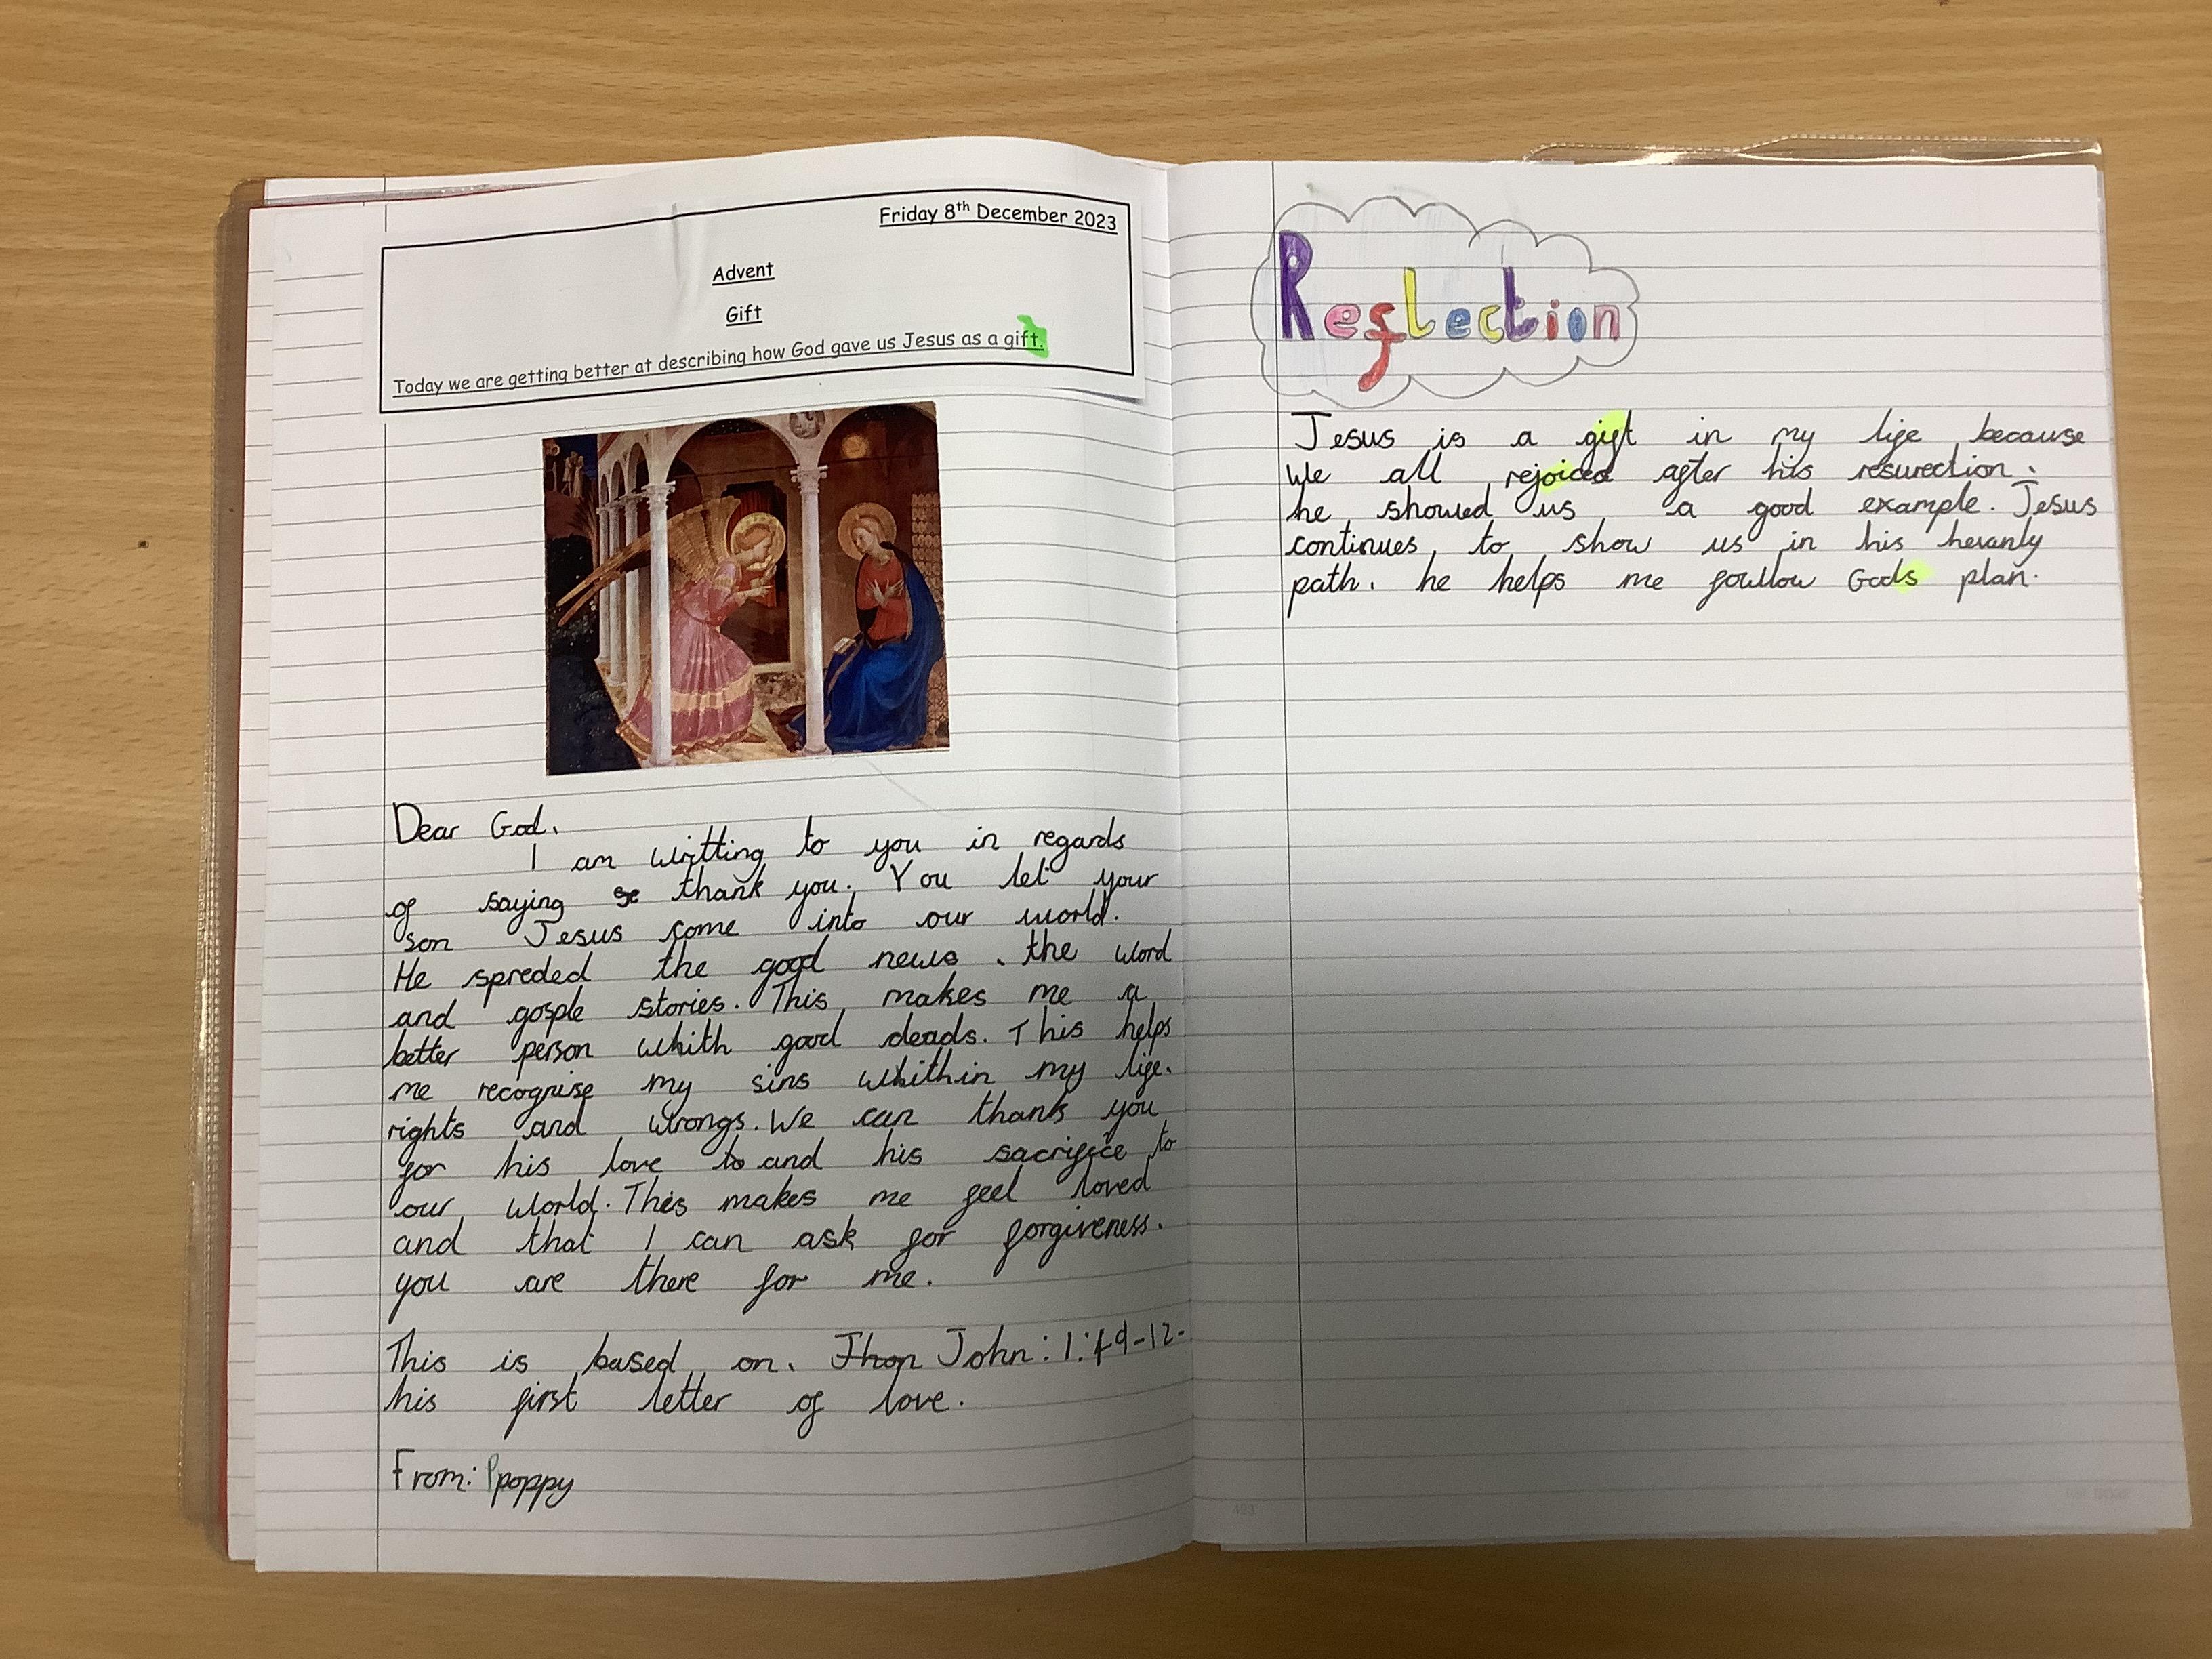 Friday 8th December 2023
Advent
Gift
Today we are getting better at describing how God gave us Jesus as a gift.
Dear God,
I am writting to you in regards
of saying thank you. You let your
son Jesus come into our world.
He spreded the good news, the word
and gosple stories. This makes me a
better person whith good deads. This helps
me recognise my sins whithin my life.
rights and wrongs. We can thank you
for his love to and his sacrifice to
our world. This makes me feel loved
and that I can ask for forgiveness.
you are there for me.
This is based on, Jhon John: 1:49-12-
his first letter of love.
From: Ppoppy
Reflection
Jesus is a gift in my life because
We all rejoiced after his resurection,
he showed us a good example. Jesus
continues to show us in his hevanly
path. he helps me foullow Gods plan.